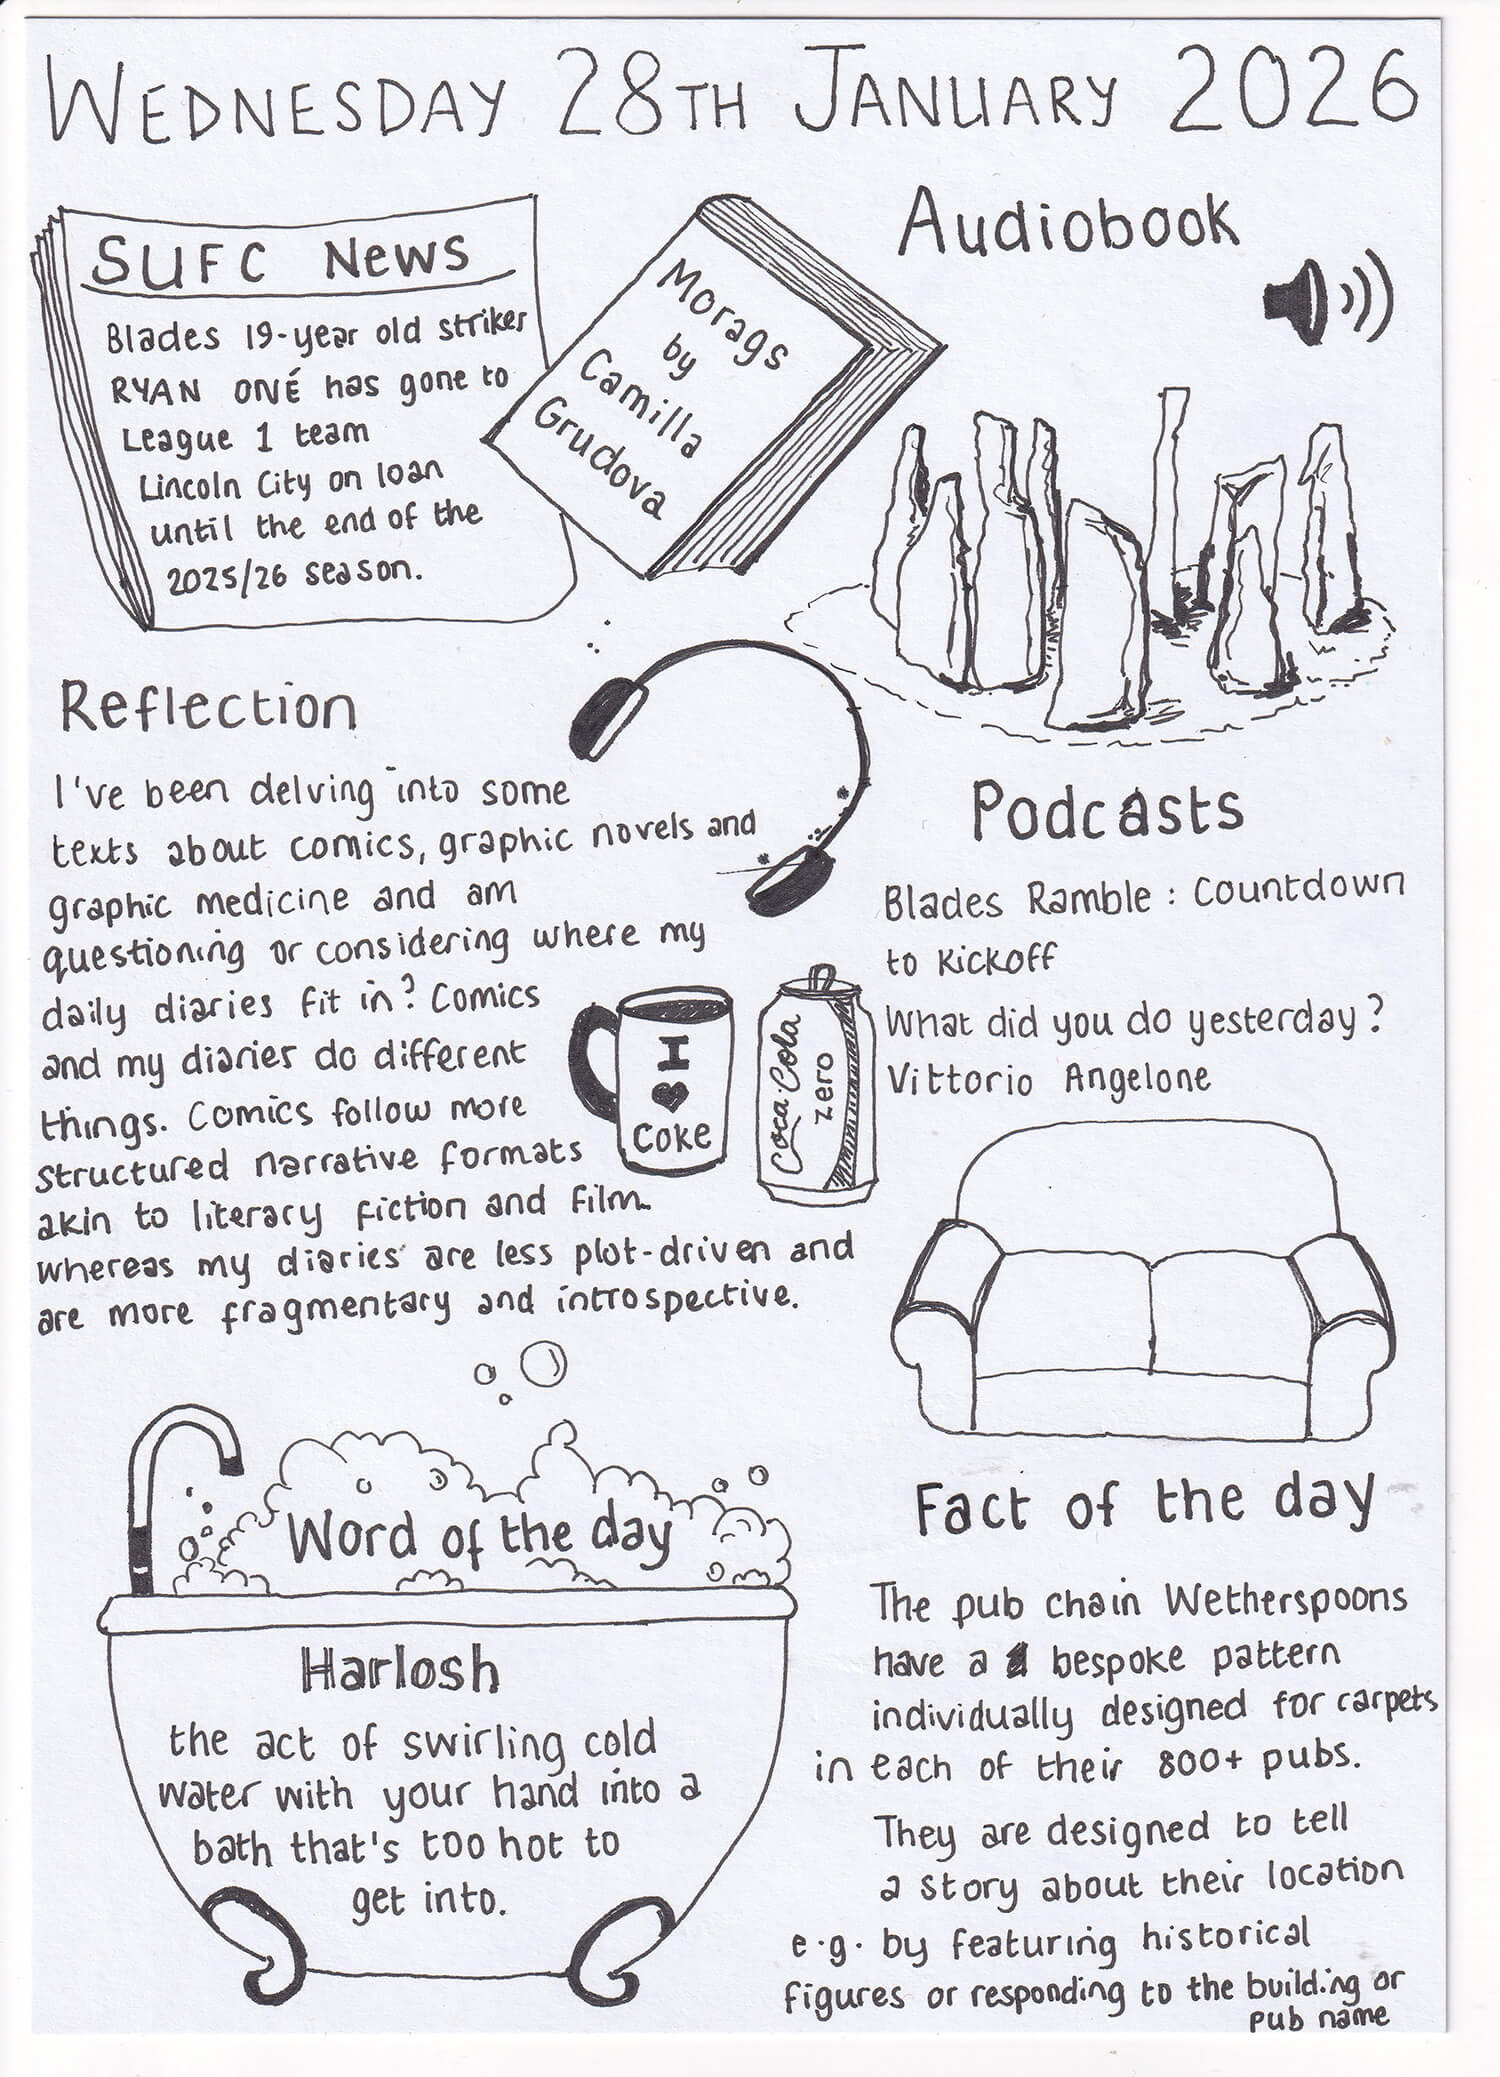 WEDNESDAY 28TH JANUARY 2026
SUFC News
Blades 19-year old striker
RYAN ONÉ has gone to
League 1 team
Lincoln City on loan
until the end of the
2025/26 season.
Morags
by
Camilla
Grudova
Audiobook
Reflection
I've been delving into some
texts about comics, graphic novels and
graphic medicine and am
questioning or considering where my
daily diaries fit in? Comics
and my diaries do different
things. Comics follow more
structured narrative formats
akin to literary fiction and film.
whereas my diaries are less plot-driven and
are more fragmentary and introspective.
I
♥
COKE
Coca-Cola
zero
Podcasts
Blades Ramble: Countdown
to Kickoff
What did you do yesterday?
Vittorio Angelone
Word of the day
Harlosh
the act of swirling cold
water with your hand into a
bath that's too hot to
get into.
Fact of the day
The pub chain Wetherspoons
have a bespoke pattern
individually designed for carpets
in each of their 800+ pubs.
They are designed to tell
a story about their location
e.g. by featuring historical
figures or responding to the building or
pub name